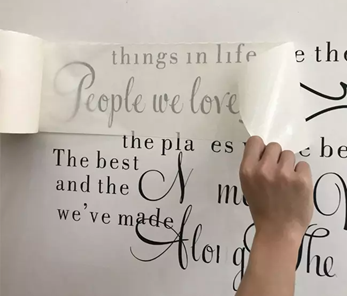 things in life e the
People we love
the pla es e be
The best
and the N m
we've made
Alon g The